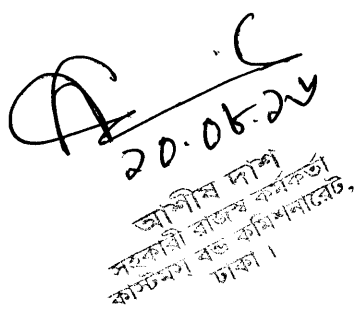 আশীষ দাশ
সহকারী রাজস্ব কর্মকর্তা
কাস্টমস বন্ড কমিশনারেট,
ঢাকা।